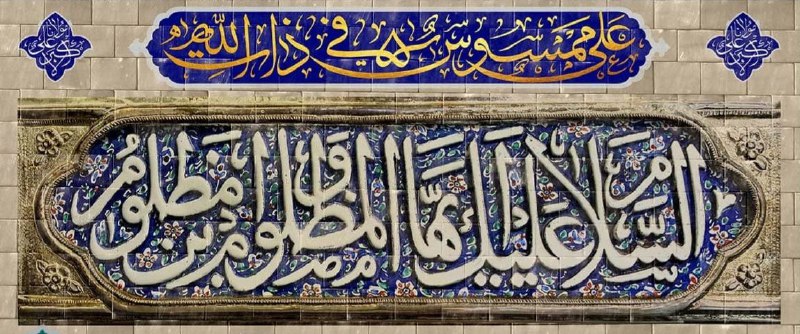 علي ممسوس في ذات الله
السلام عليك أيها المظلوم و ابن المظلوم